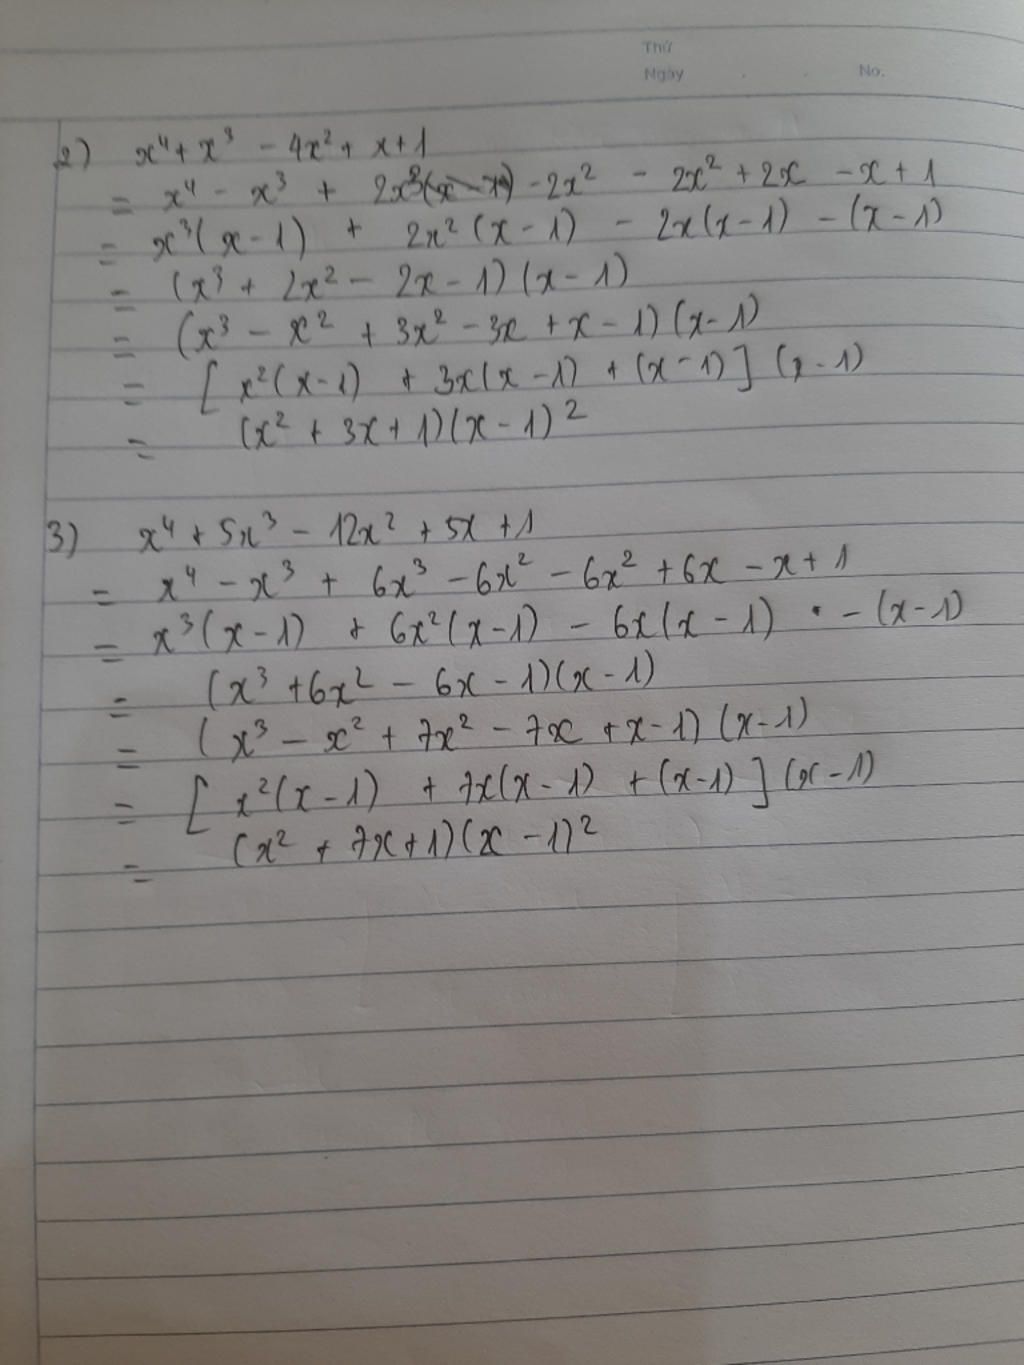 Thứ
Ngày
No.
2) x⁴ + x³ - 4x² + x + 1
= x⁴ - x³ + 2x³ - 2x² - 2x² + 2x - x + 1
= x³(x - 1) + 2x²(x - 1) - 2x(x - 1) - (x - 1)
= (x³ + 2x² - 2x - 1)(x - 1)
= (x³ - x² + 3x² - 3x + x - 1)(x - 1)
= [x²(x - 1) + 3x(x - 1) + (x - 1)](x - 1)
= (x² + 3x + 1)(x - 1)²
3) x⁴ + 5x³ - 12x² + 5x + 1
= x⁴ - x³ + 6x³ - 6x² - 6x² + 6x - x + 1
= x³(x - 1) + 6x²(x - 1) - 6x(x - 1) - (x - 1)
= (x³ + 6x² - 6x - 1)(x - 1)
= (x³ - x² + 7x² - 7x + x - 1)(x - 1)
= [x²(x - 1) + 7x(x - 1) + (x - 1)](x - 1)
= (x² + 7x + 1)(x - 1)²